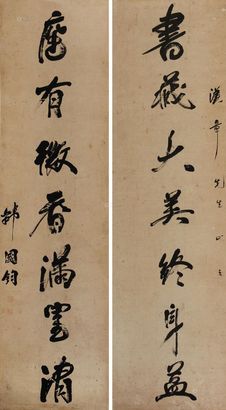 漢章先生正之
書藏大美終身益
座有微香滿室清
韓國鈞